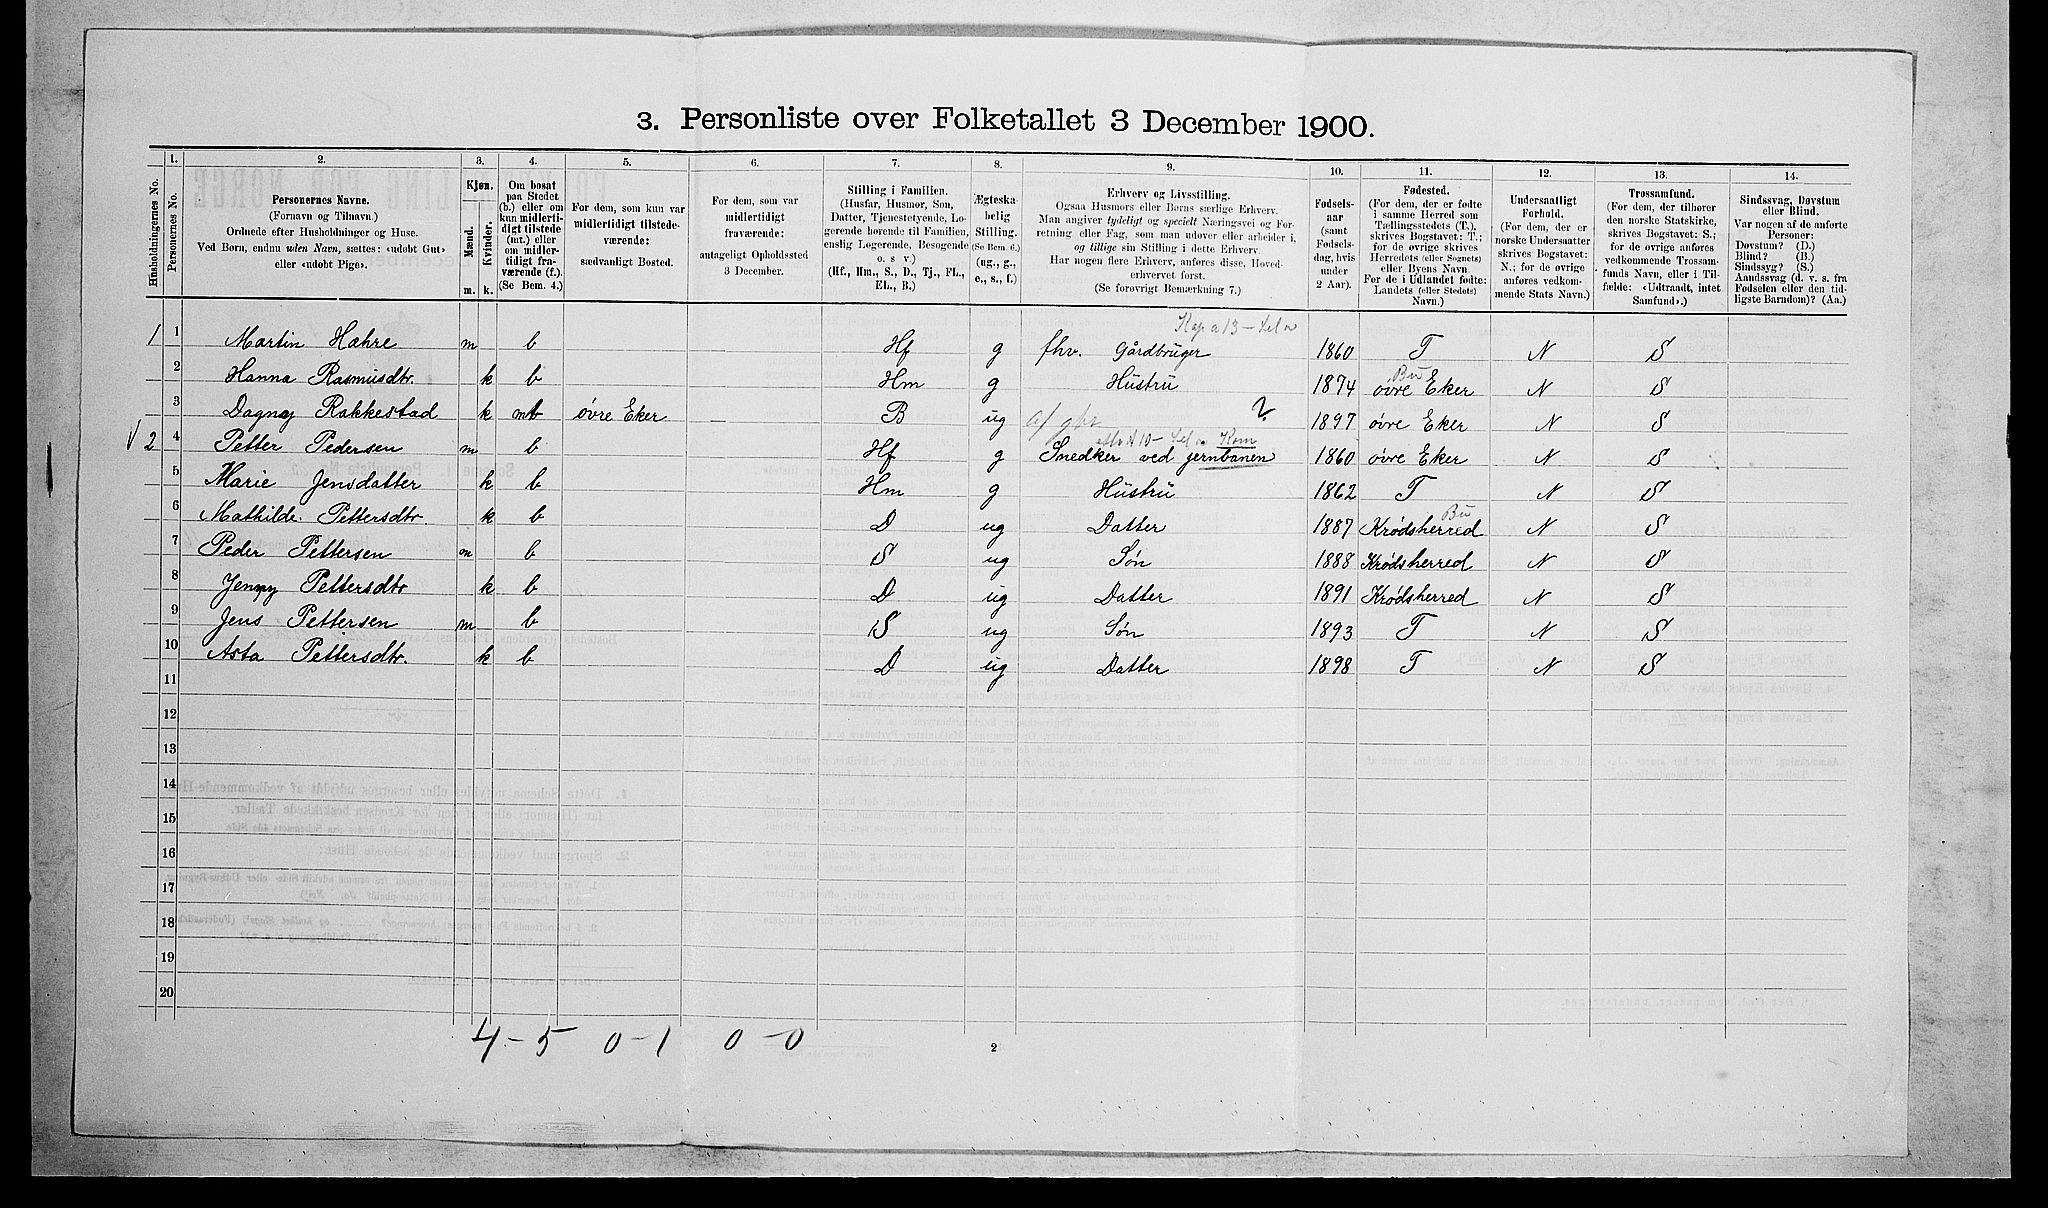 3. Personliste over Folketallet 3 December 1900.
Husholdningernes No.
1. Personernes No.
2. Personernes Navne.
(Fornavn og Tilnavn.)
Ordnede efter Husholdninger og Huse.
Ved Børn, endnu uden Navn, sættes: «udøbt Gut»
eller «udøbt Pige».
3. Kjøn.
Mænd. Kvinder.
m. k.
4. Om bosat
paa Stedet
(b.) eller om
kun midlerti-
digt tilstede
(mt.) eller
om midler-
tidigt fra-
værende (f.).
(Se Bem. 4.)
5. For dem, som kun var
midlertidigt tilstede-
værende:
sædvanligt Bosted.
6. For dem, som var
midlertidigt
fraværende:
antageligt Opholdssted
3 December.
7. Stilling i Familien.
(Husfar, Husmor, Søn,
Datter, Tjenestetyende, Lo-
gerende hørende til Familien,
enslig Logerende, Besøgende
o. s. v.)
(Hf., Hm., S., D., Tj., FL.,
EL., B.)
8. Ægteska-
belig
Stilling.
(Se Bem. 6.)
(ug., g.,
e., s., f.)
9. Erhverv og Livsstilling.
Ogsaa Husmors eller Børns særlige Erhverv.
Man angiver tydeligt og specielt Næringsvei og For-
retning eller Fag, som man udøver eller arbeider i,
og tillige sin Stilling i dette Erhverv.
Har nogen flere Erhverv, anføres disse, Hoved-
erhvervet først.
(Se forøvrigt Bemærkning 7.)
10. Fødsels-
aar
(samt
Fødsels-
dag, hvis
under
2 Aar).
11. Fødested.
(For dem, der er fødte
i samme Herred som
Tællingsstedets (T.),
skrives Bogstavet: T.;
for de øvrige skrives
Herredets (eller Sognets)
eller Byens Navn.
For de i Udlandet fødte:
Landets (eller Stedets)
Navn.)
12. Undersaatligt
Forhold.
(For dem, der er
norske Undersaatter
skrives Bogstavet:
N.; for de øvrige
anføres vedkom-
mende Stats Navn.)
13. Trossamfund.
(For dem, der tilhører
den norske Statskirke,
skrives Bogstavet: S.;
for de øvrige anføres
vedkommende Trossam-
funds Navn, eller i Til-
fælde: «Udtraadt, intet
Samfund».)
14. Sindssvag, Døvstum
eller Blind.
Var nogen af de anførte
Personer:
Døvstum? (D.)
Blind? (B.)
Sindssyg? (S.)
Aandssvag (d. v. s. fra
Fødselen eller den tid-
ligste Barndom)? (Aa.)
1 1 Martin Hahre m b Hf g fhv. Gårdbruger 1860 T N S
2 Hanna Rasmusdtr. k b Hm g Hustru 1874 Bu øvre Eker N S
3 Dagny Rakkestad k mt øvre Eker — B ug 1897 øvre Eker N S
2 4 Petter Pedersen m b Hf g Snedker ved jernbanen 1860 øvre Eker N S
5 Marie Jensdatter k b Hm g Hustru 1862 T N S
6 Mathilde Pettersdtr. k b D ug Datter 1887 Bu Krødsherred N S
7 Peder Pettersen m b S ug Søn 1888 Krødsherred N S
8 Jenny Pettersdtr k b D ug Datter 1891 Krødsherred N S
9 Jens Pettersen m b S ug Søn 1893 T N S
10 Asta Pettersdtr. k b D ug Datter 1898 T N S
11
12
13
14
15
16
17
18
19
20
4-5 0-1 0-0
2